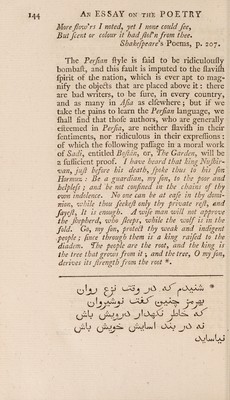 144 AN ESSAY ON THE POETRY
More flow'rs I noted, yet I none could see,
But scent or colour it had stol'n from thee.
Shakespeare's Poems, p. 207.
The Persian style is said to be ridiculously
bombast, and this fault is imputed to the slavish
spirit of the nation, which is ever apt to mag-
nify the objects that are placed above it: there
are bad writers, to be sure, in every country,
and as many in Asia as elsewhere; but if we
take the pains to learn the Persian language, we
shall find that those authors, who are generally
esteemed in Persia, are neither slavish in their
sentiments, nor ridiculous in their expressions:
of which the following passage in a moral work
of Sadi, entitled Bostân, or, The Garden, will be
a sufficient proof. I have heard that king Nushir-
van, just before his death, spoke thus to his son
Hormuz: Be a guardian, my son, to the poor and
helpless; and be not confined in the chains of thy
own indolence. No one can be at ease in thy domi-
nion, while thou seekest only thy private rest, and
sayest, It is enough. A wise man will not approve
the shepherd, who sleeps, while the wolf is in the
fold. Go, my son, protect thy weak and indigent
people; since through them is a king raised to the
diadem. The people are the root, and the king is
the tree that grows from it; and the tree, O my son,
derives its strength from the root *.
* شنیدم که در وقت نزع روان
بهرمز چنین گفت نوشیروان
که خاطر نگهدار درویش باش
نه در بند اسایش خویش باش
نیاساید